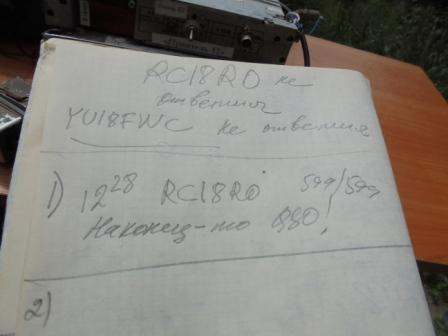 RC18RO не
ответил
YU18FWC не ответил
1) 12²⁸ RC18RO 599/599
Наконец-то QSO!
2)